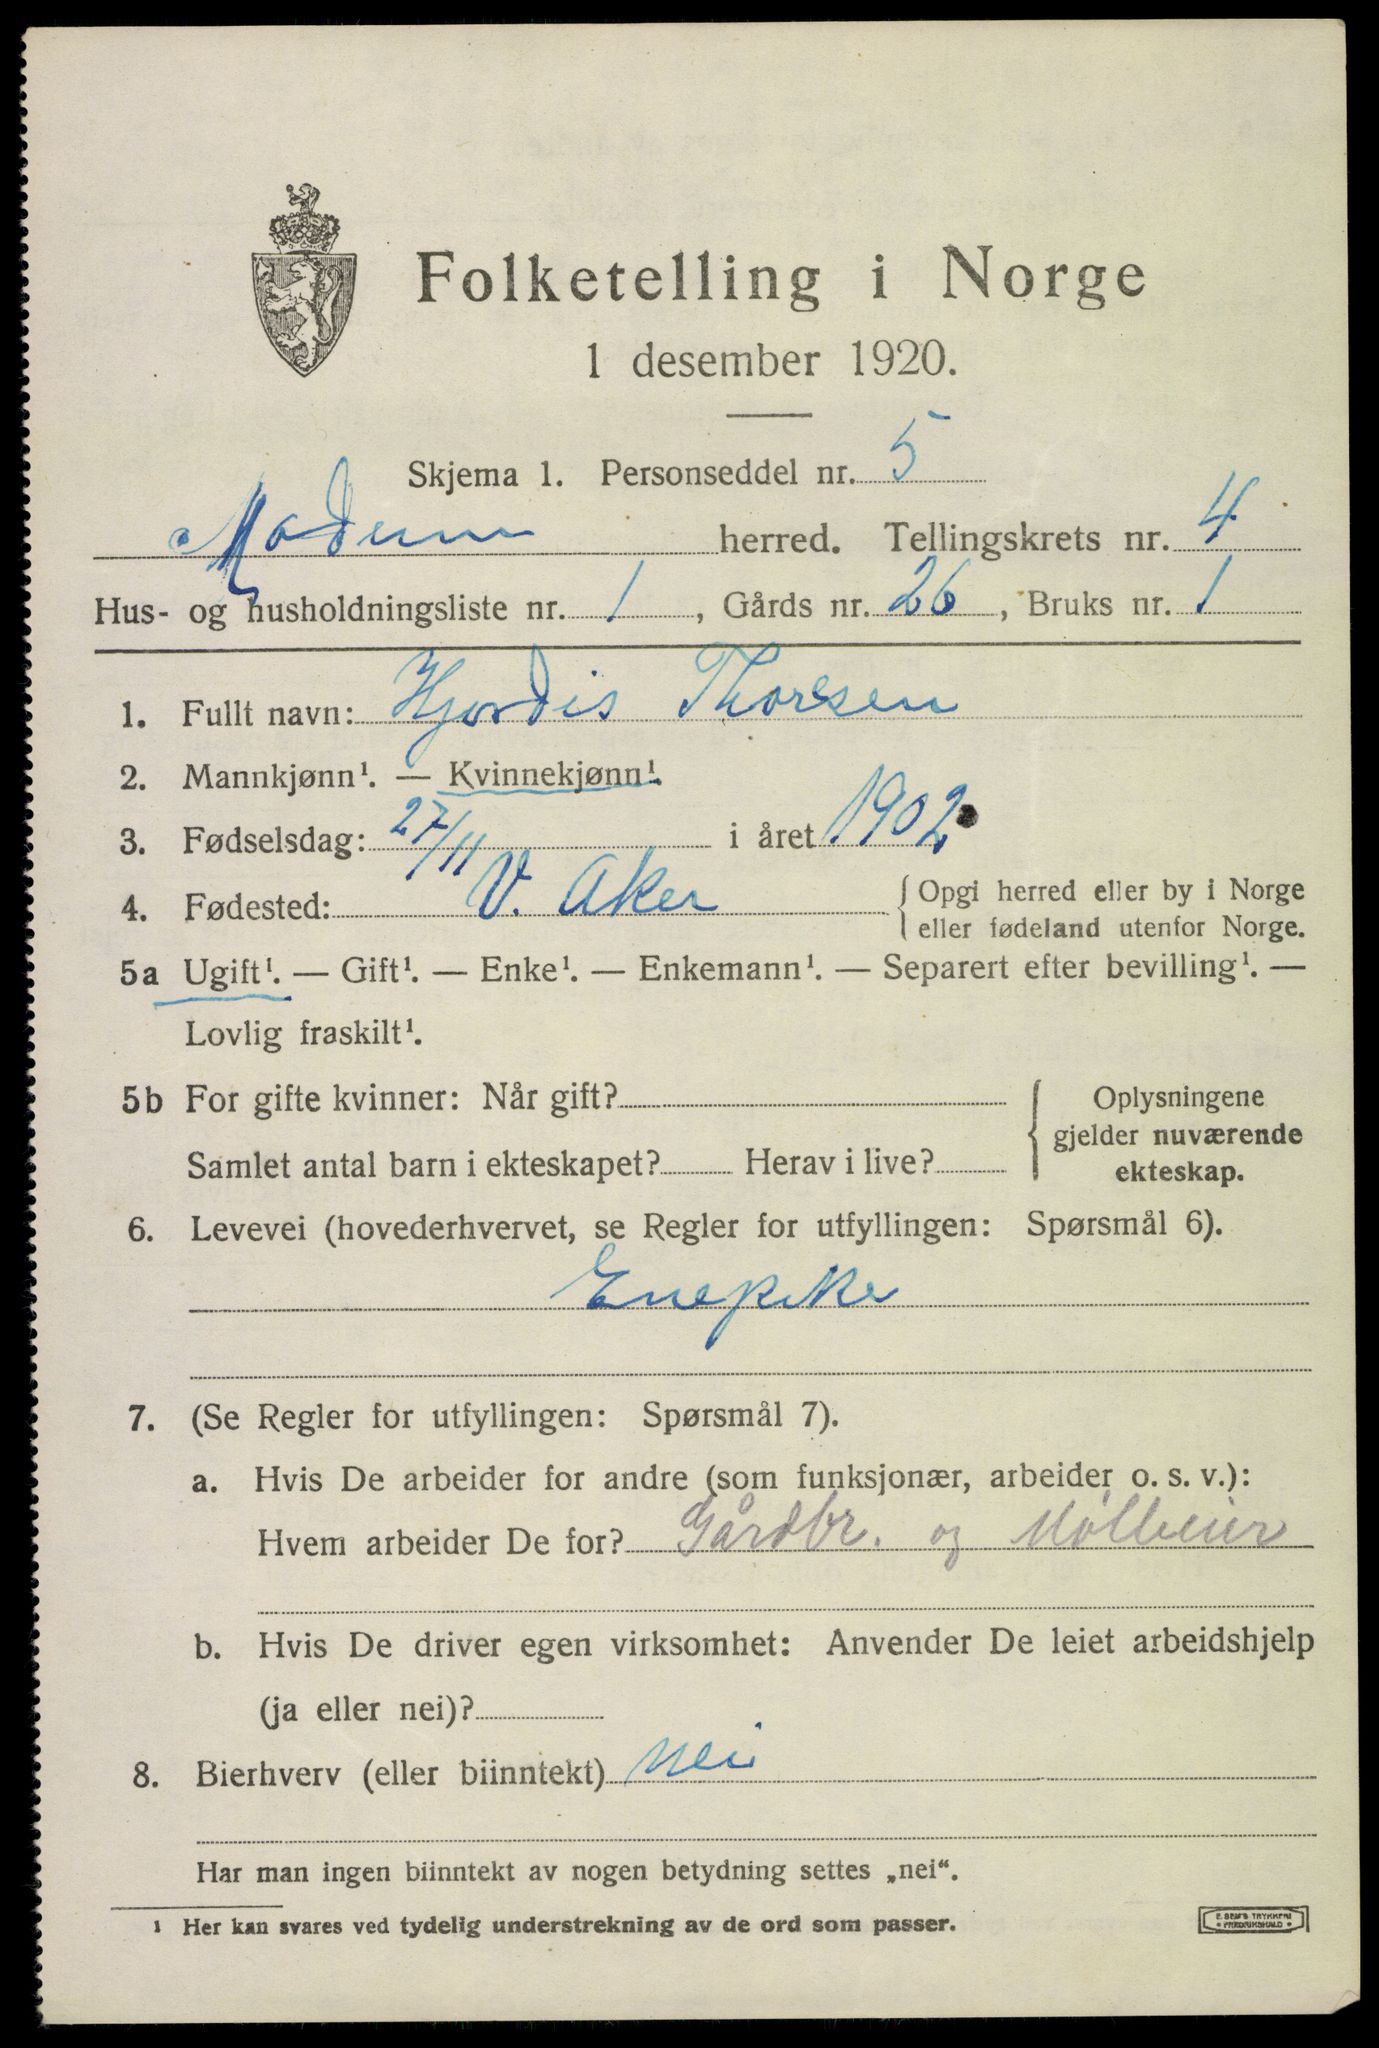 Folketelling i Norge
1 desember 1920.
Skjema 1. Personseddel nr. 5
Modum herred. Tellingskrets nr. 4
Hus- og husholdningsliste nr. 1, Gårds nr. 26, Bruks nr. 1
1. Fullt navn: Hjordis Thoresen
2. Mannkjønn¹. — Kvinnekjønn¹.
3. Fødselsdag: 27/11 i året 1902
4. Fødested: V. Aker { Opgi herred eller by i Norge
eller fødeland utenfor Norge.
5a Ugift¹. — Gift¹. — Enke¹. — Enkemann¹. — Separert efter bevilling¹. —
Lovlig fraskilt¹.
5b For gifte kvinner: Når gift? { Oplysningene
gjelder nuværende
Samlet antal barn i ekteskapet? Herav i live? ekteskap.
6. Levevei (hovederhvervet, se Regler for utfyllingen: Spørsmål 6).
Enepike
7. (Se Regler for utfyllingen: Spørsmål 7).
a. Hvis De arbeider for andre (som funksjonær, arbeider o. s. v.):
Hvem arbeider De for? Gårdbr. og Mølleeier
b. Hvis De driver egen virksomhet: Anvender De leiet arbeidshjelp
(ja eller nei)?
8. Bierhverv (eller biinntekt) nei
Har man ingen biinntekt av nogen betydning settes „nei“.
¹ Her kan svares ved tydelig understrekning av de ord som passer.
E. SEM'S TRYKKERI
• FREDRIKSHALD •